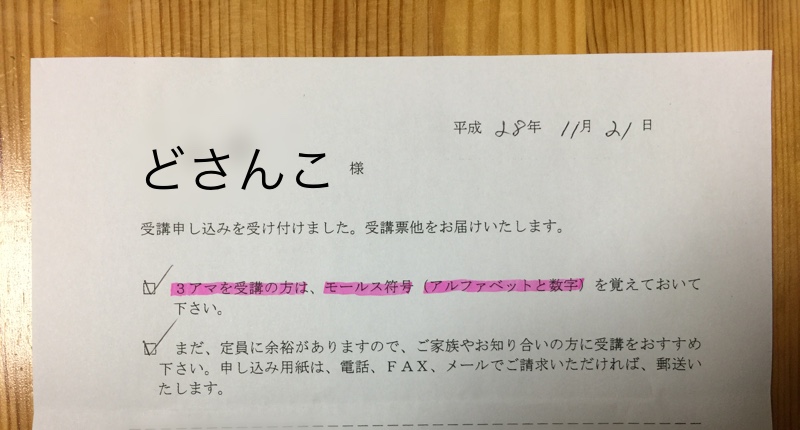 平成 28年 11月 21日
どさんこ 様
受講申し込みを受け付けました。受講票他をお届けいたします。
☑ 3アマを受講の方は、モールス符号（アルファベットと数字）を覚えておいて
下さい。
☑ まだ、定員に余裕がありますので、ご家族やお知り合いの方に受講をおすすめ
下さい。申し込み用紙は、電話、FAX、メールでご請求いただければ、郵送い
たします。